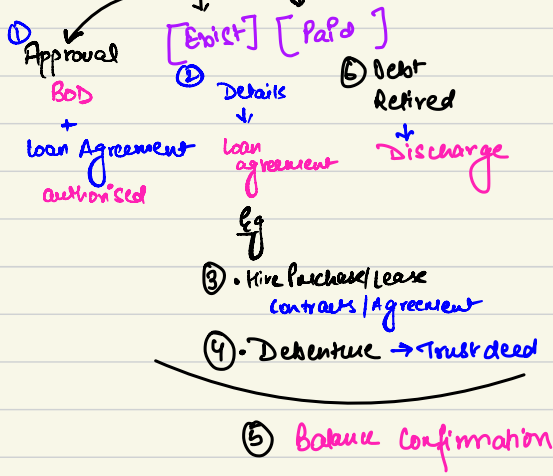 [Exist] [Paid]
① Approval
BOD
+
Loan Agreement
authorised
② Details
↓
loan
agreement
⑥ Debt
Retired
↓
Discharge
Eg
③ • Hire Purchase/Lease
Contracts/Agreement
④ • Debenture → Trust deed
⑤ Balance Confirmation